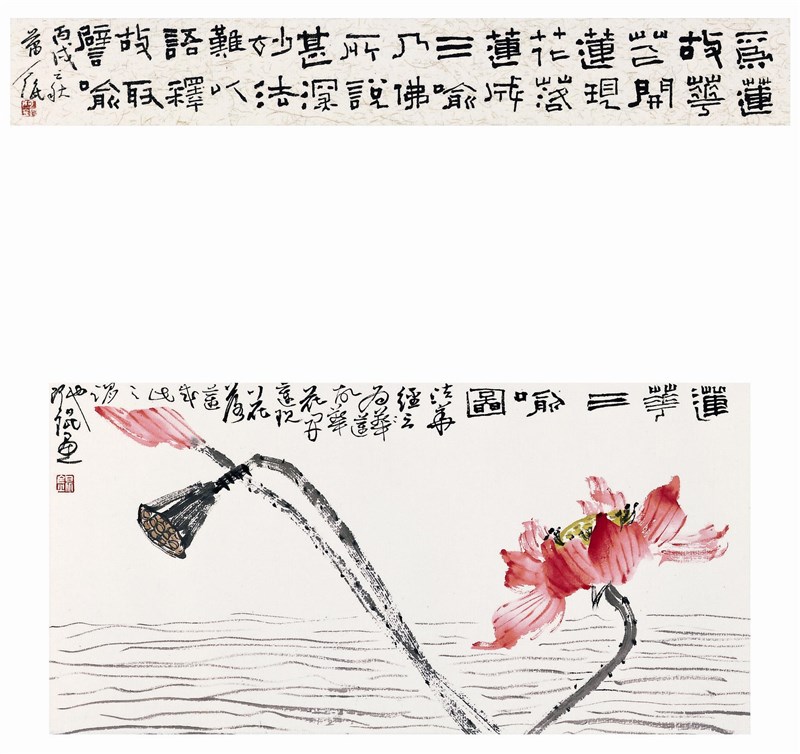 為蓮
故華
花開
蓮現
花落
蓮成
三喻
乃佛
所說
甚深
妙法
難以
語釋
故取
譬喻
丙戌之秋
蓮華三喻圖
法華
經云
為蓮
故華
花開
蓮現
花
落
蓮
成
此
之
謂